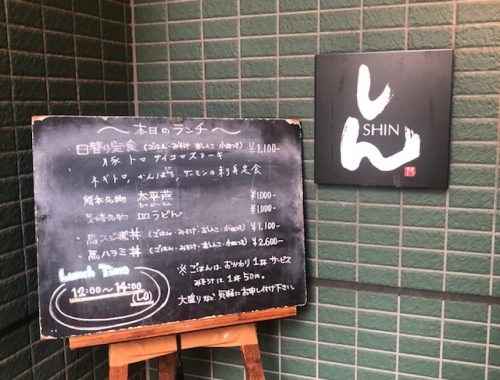 ～本日のランチ～
日替り定食 (ごはん・みそ汁・おしんこ・小鉢つき) ¥1,100-
豚トロサイコロステーキ
ネギトロ、かんぱち、サーモンの刺身定食
熊本名物 太平燕 ¥1,000-
長崎名物 皿うどん ¥1,000-
・馬スジ煮丼 (ごはん・みそ汁・おしんこ・小鉢つき) ¥1,100-
・馬ハラミ丼 (ごはん・みそ汁・おしんこ・小鉢つき) ¥2,600-
Lunch Time
12:00～14:00
(L.O)
※ごはんは、おかわり1杯サービス
みそ汁は1杯50円。
大盛りなど、気軽にお申し付け下さい。
しん
SHIN